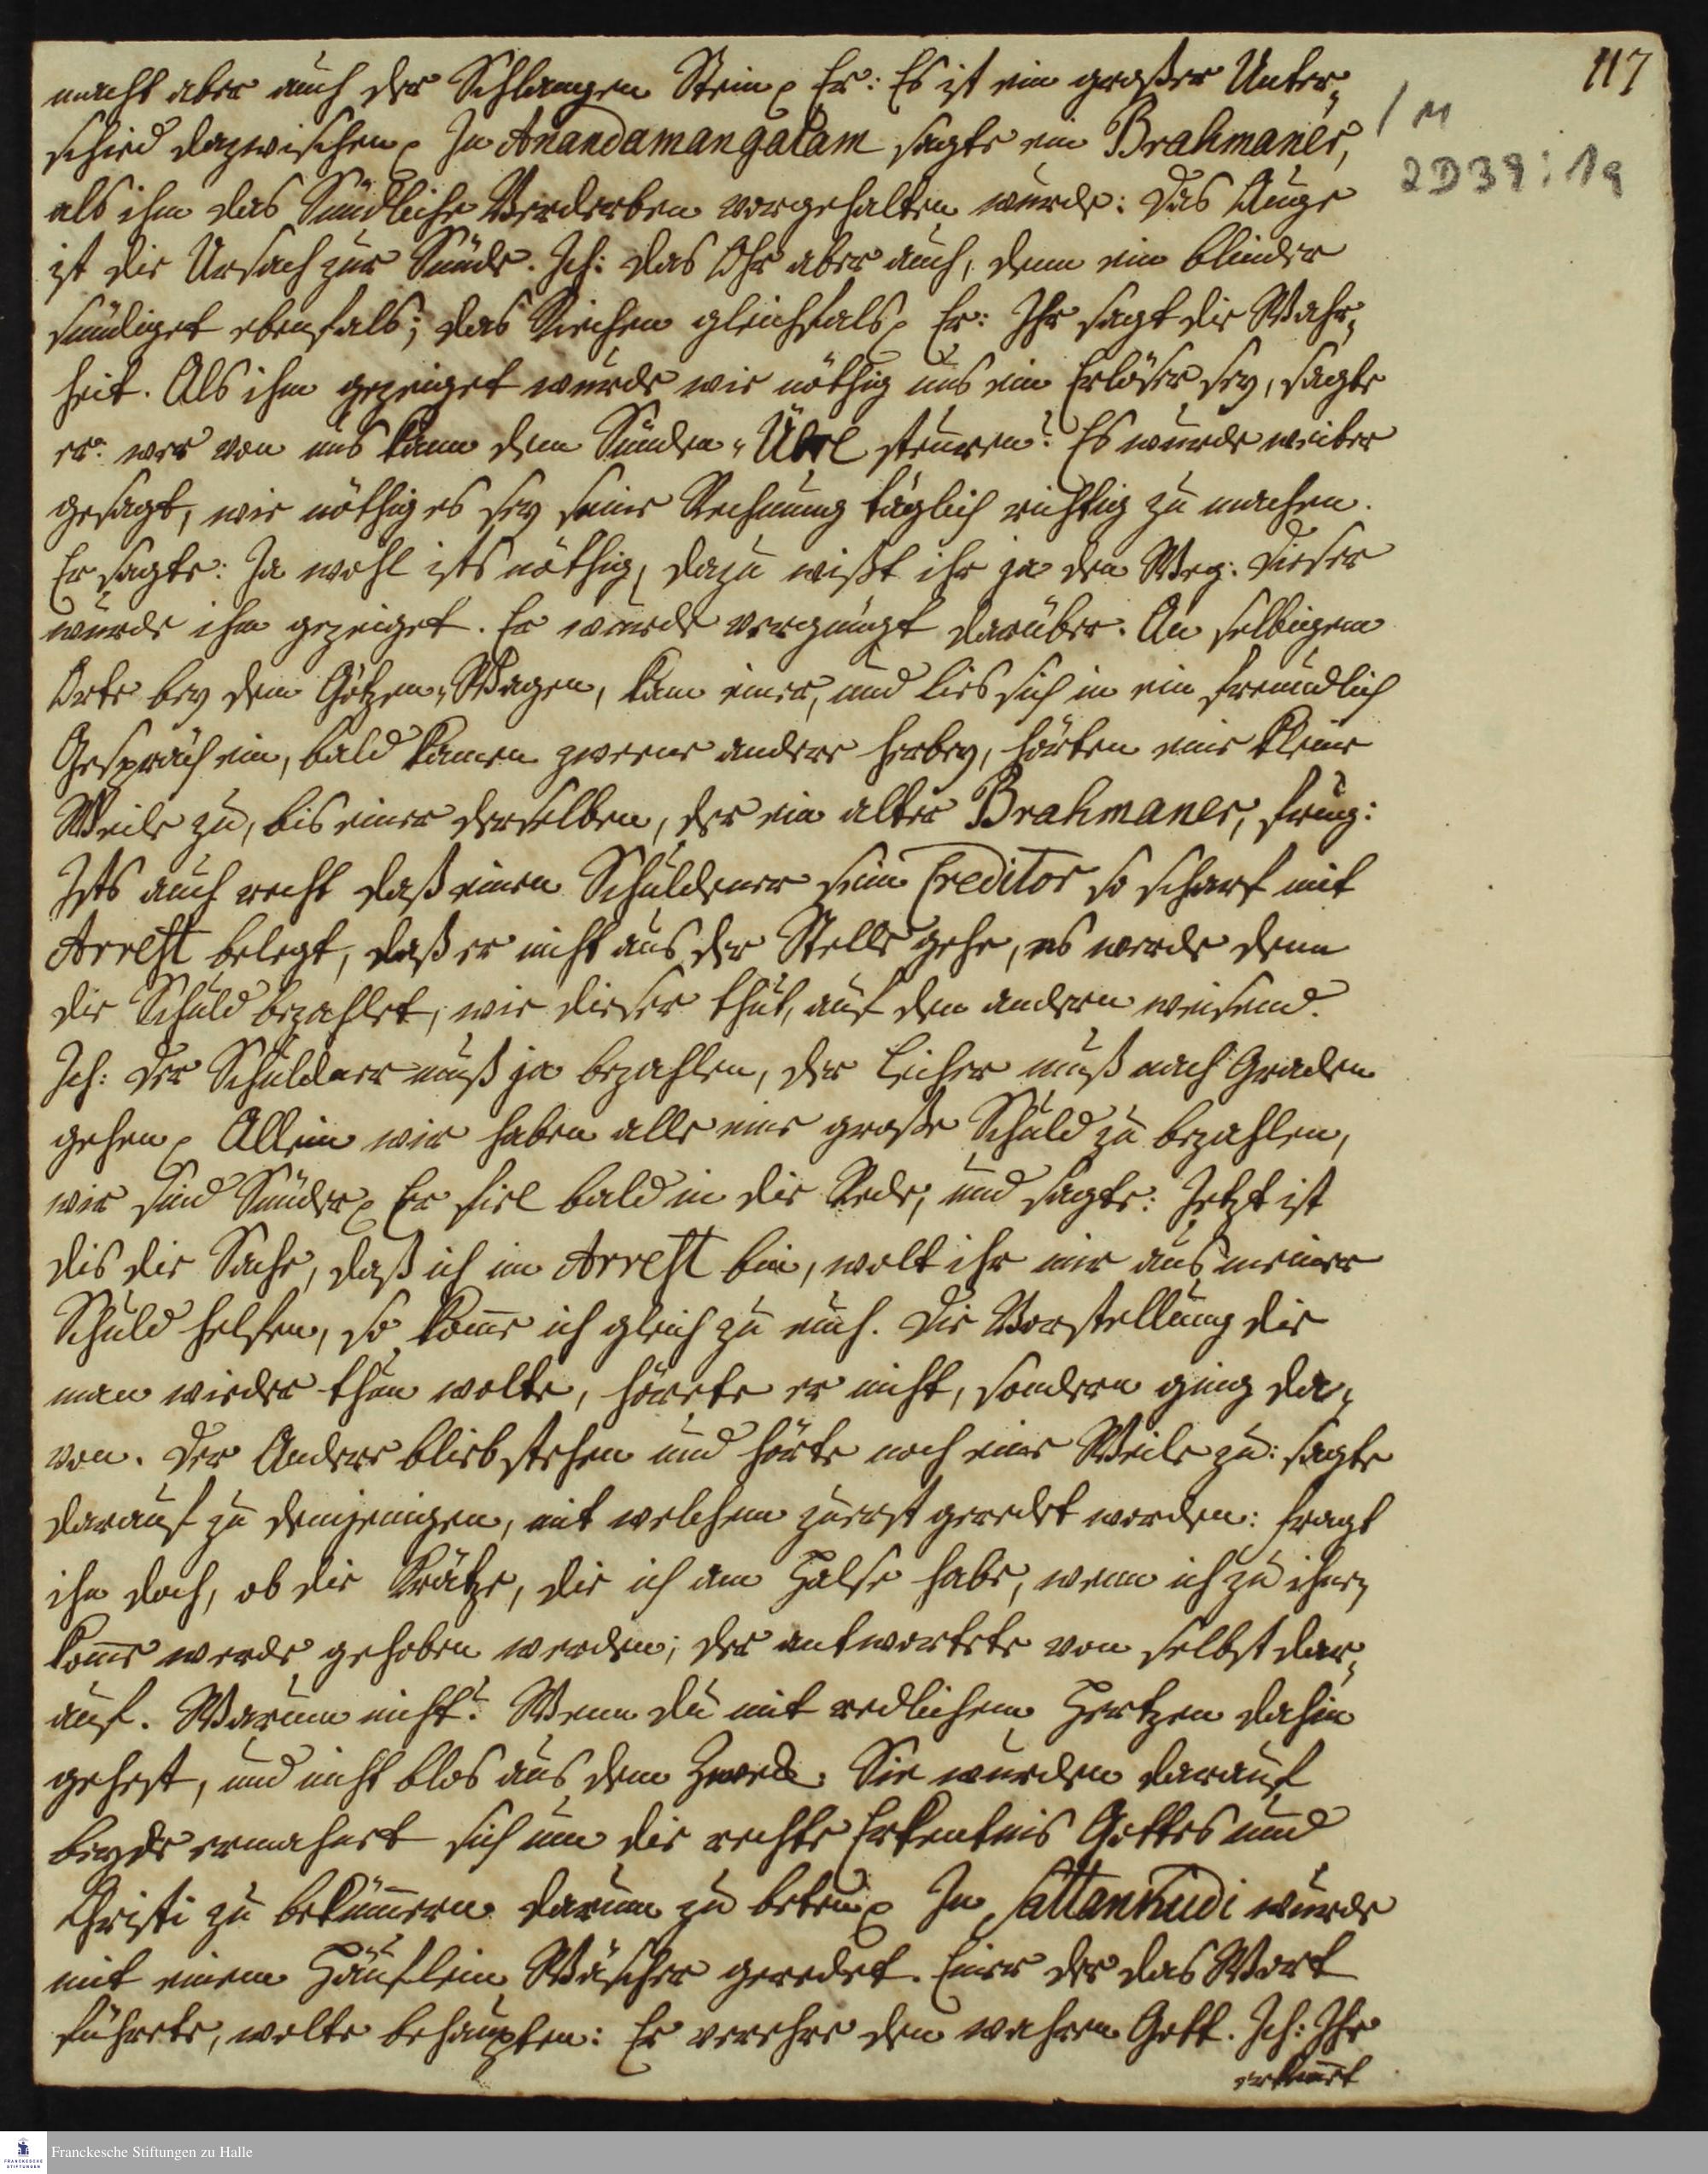 117
/ M
2D39:19
macht aber auch der Schlangen Stein p Er: Es ist ein großer Unter-
schied dazwischen p In Anandamangalam sagte ein Brahmaner,
als ihm das Sündliche Verderben vorgehalten wurde: Das Auge
ist die Ursach zur Sünde. Ich: das Ohr aber auch, denn ein blinder
sündiget ebenfals; das Riechen gleichfals p Er: Ihr sagt die Wahr-
heit. Als ihm gezeiget wurde wie nöthig uns ein Erlöser sey, sagte
er: wer von uns kann dem Sünden-Übel steuren? Es wurde weiter
gesagt, wie nöthig es sey seine Rechnung täglich richtig zu machen.
Er sagte: Ja wohl ists nöthig, dazu wißt ihr ja den Weg: Dieser
wurde ihm gezeiget. Er wurde vergnügt darüber. An selbigem
Orte bey dem Götzen-Wagen, kam einer, und lies sich in ein freundlich
Gespräch ein, bald kamen zweene andere herbey, hörten eine kleine
Weile zu, bis einer derselben, der ein alter Brahmaner, frug:
Ists auch recht daß einen Schuldener sein Creditor so scharf mit
Arrest belegt, daß er nicht aus der Stelle gehe, es werde denn
die Schuld bezahlet, wie dieser thut, auf den andern weisend.
Ich: Der Schuldner muß ja bezahlen, der Leiher muß nach Gnaden
gehen p Allein wir haben alle eine große Schuld zu bezahlen,
wir sind Sünder p Er fiel bald in die Rede, und sagte: Jetzt ist
dis die Sache, daß ich im Arrest bin, wolt ihr mir aus meiner
Schuld helfen, so kom̄e ich gleich zu euch. Die Vorstellung die
man wieder thun wolte, hörete er nicht, sondern ging da-
von. Der Andere blieb stehen und hörte noch eine Weile zu: sagte
darauf zu demjenigen, mit welchem zuerst geredet worden: fragt
ihn doch, ob die Krätze, die ich am Halse habe, wenn ich zu ihnen
kom̄e werde gehoben werden; der antwortete von selbst dar-
auf. Warum nicht? Wenn du mit redlichem Hertzen dahin
gehest, und nicht blos aus dem Zweck. Sie wurden darauf
beyde ermahnet sich um die rechte Erkentnis Gottes und
Christi zu beküm̄ern darum zu beten p In Sattankudi wurde
mit einem Häuflein Wäscher geredet. Einer der das Wort
führete, wolte behaupten: Er verehre den wahren Gott. Ich: Ihr
erken̄et
Franckesche Stiftungen zu Halle